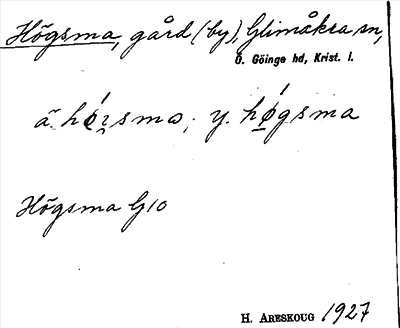 Högsma, gård (by), Glimåkra sn,
Ö. Göinge hd, Krist. l.
ä. hǿɪsma; y. hǿgsma
Högsma G10
H. Areskoug 1927